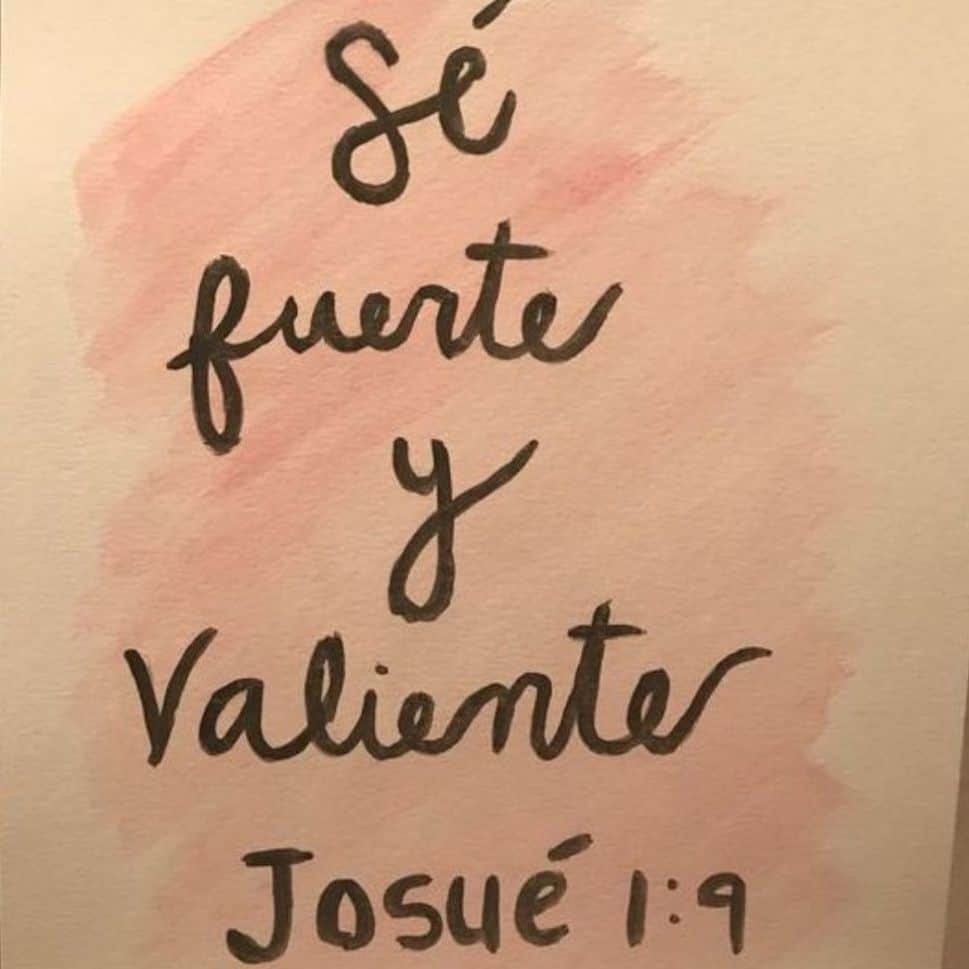 Sé
fuerte
y
Valiente
Josué 1:9